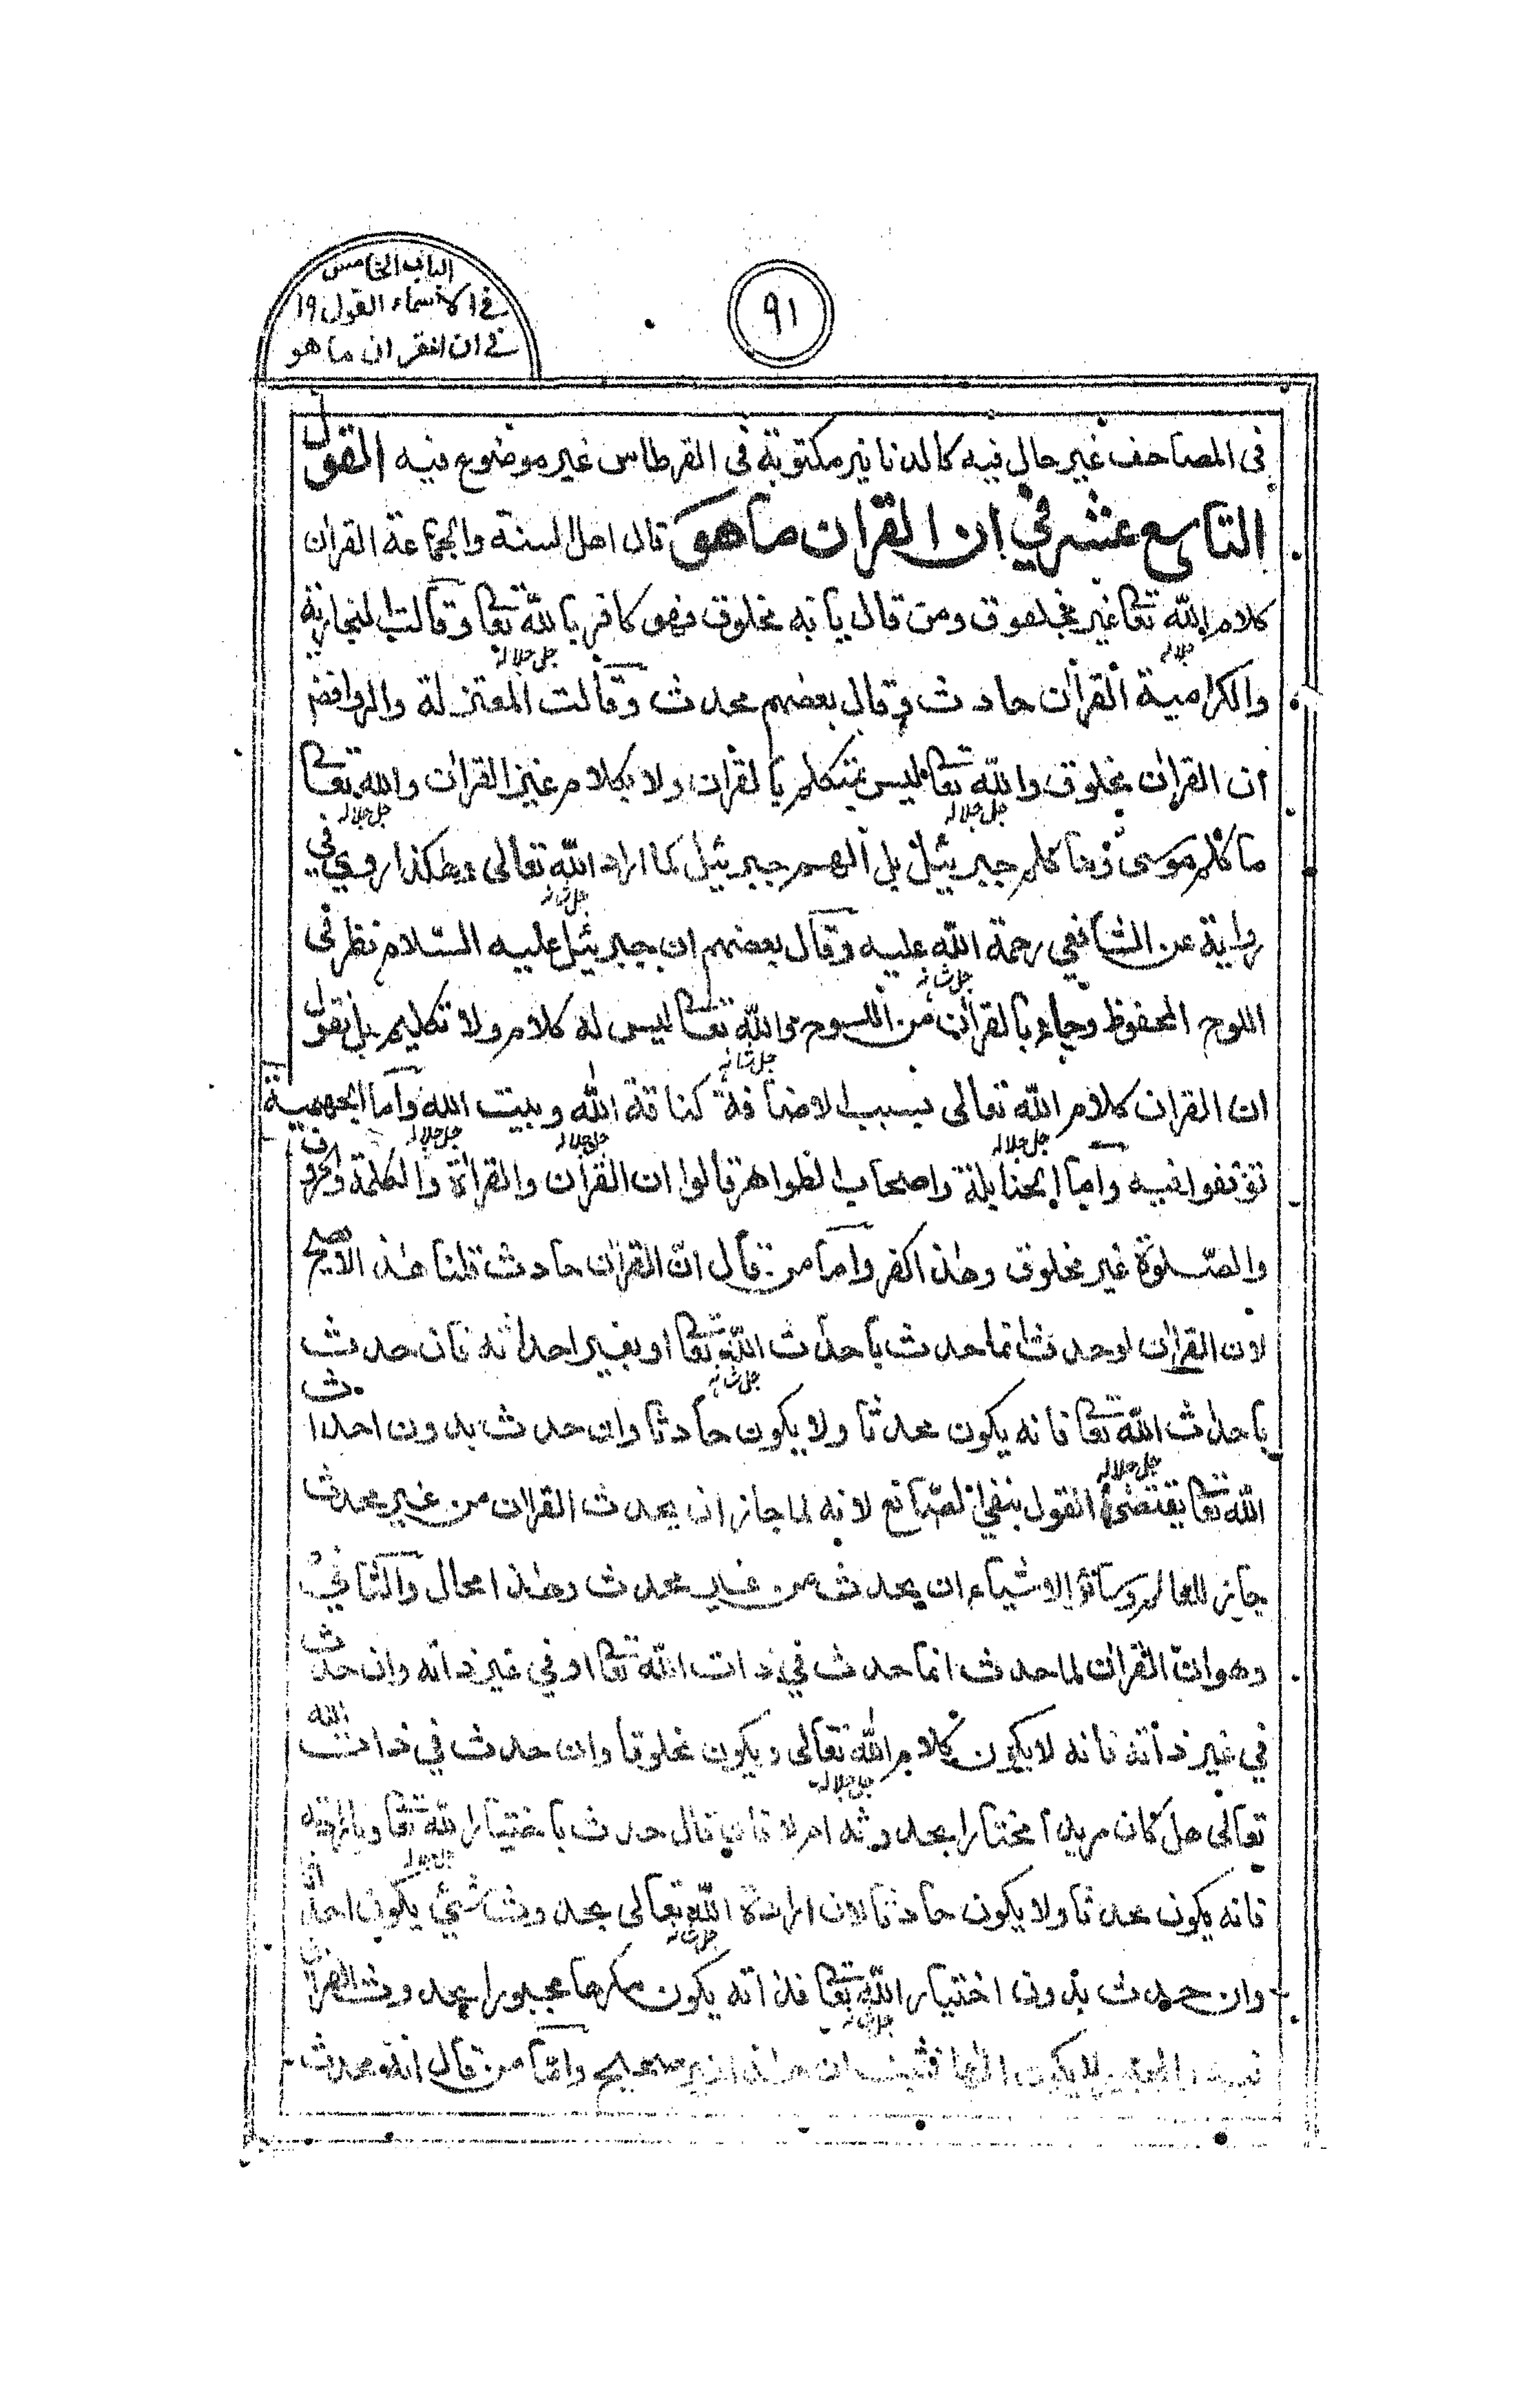 الباب الخامس
في الاسماء القول ١٩
في ان القران ما هو
٩١
في المصاحف غير حال فيه كالدنانير مكتوبة في القرطاس غير موضوع فيه القول
التاسع عشر في ان القران ما هو قال اهل السنة والجماعة القران
كلام الله تعا غير مخلوق ومن قال بانه مخلوق فهو كافر بالله تعا وقالت النجارية
جل جلاله جلاله
والكرامية القران حادث وقال بعضهم محدث وقالت المعتزلة والروافض
ان القران مخلوق والله تعا ليس بمتكلم بالقران ولا بكلام غير القران والله تعا
جل جلاله جل جلاله
ما كلم موسى وما كلم جبرئيل بل الهم جبرئيل كما اراد الله تعالى وهكذا روي في
جل شانه
رواية عن الشافعي رحمة الله عليه وقال بعضهم ان جبرئيل عليه السلام نظر في
جل شانه
اللوح المحفوظ وجاء بالقران من اللوح والله تعا ليس له كلام ولا تكليم بل نقول
جل شانه
ان القران كلام الله تعالى بسبب الاضافة كناقة الله وبيت الله واما الجهمية
جل جلاله جل جلاله جل جلاله
توقفوا فيه واما الحنابلة واصحاب الظواهر قالوا ان القران والقراة والكلمة والحروف
والصلوة غير مخلوق وهذا كفر واما من قال ان القران حادث قلنا هذا لا يصح
لان القران لو حدث انما حدث باحداث الله تعا او بغير احداثه فان حدث
جل شانه
باحداث الله تعا فانه يكون محدثا ولا يكون حادثا وان حدث بدون احداث
جل جلاله
الله تعا يقتضي القول بنفي الصانع لانه لما جاز ان يحدث القران من غير محدث
جاز للعالم وسائر الاشياء ان يحدث من غير محدث وهذا محال والثاني
وهو ان القران لما حدث انما حدث في ذات الله تعا او في غير ذاته وان حدث
في غير ذاته فانه لا يكون كلام الله تعالى ويكون مخلوقا وان حدث في ذات الله
جل جلاله
تعالى هل كان مريدا مختارا بحدوثه ام لا فان قال حدث باختيار الله تعا
جل جلاله
فانه يكون محدثا ولا يكون حادثا لان ارادة الله تعالى بحدوث شئ يكون احداثا
جل شانه
وان حدث بدون اختيار الله تعا فذاته يكون مكرها مجبورا بحدوث القران
جل شانه
لا يكون الها فثبت ان هذا غير صحيح واما من قال انه محدث